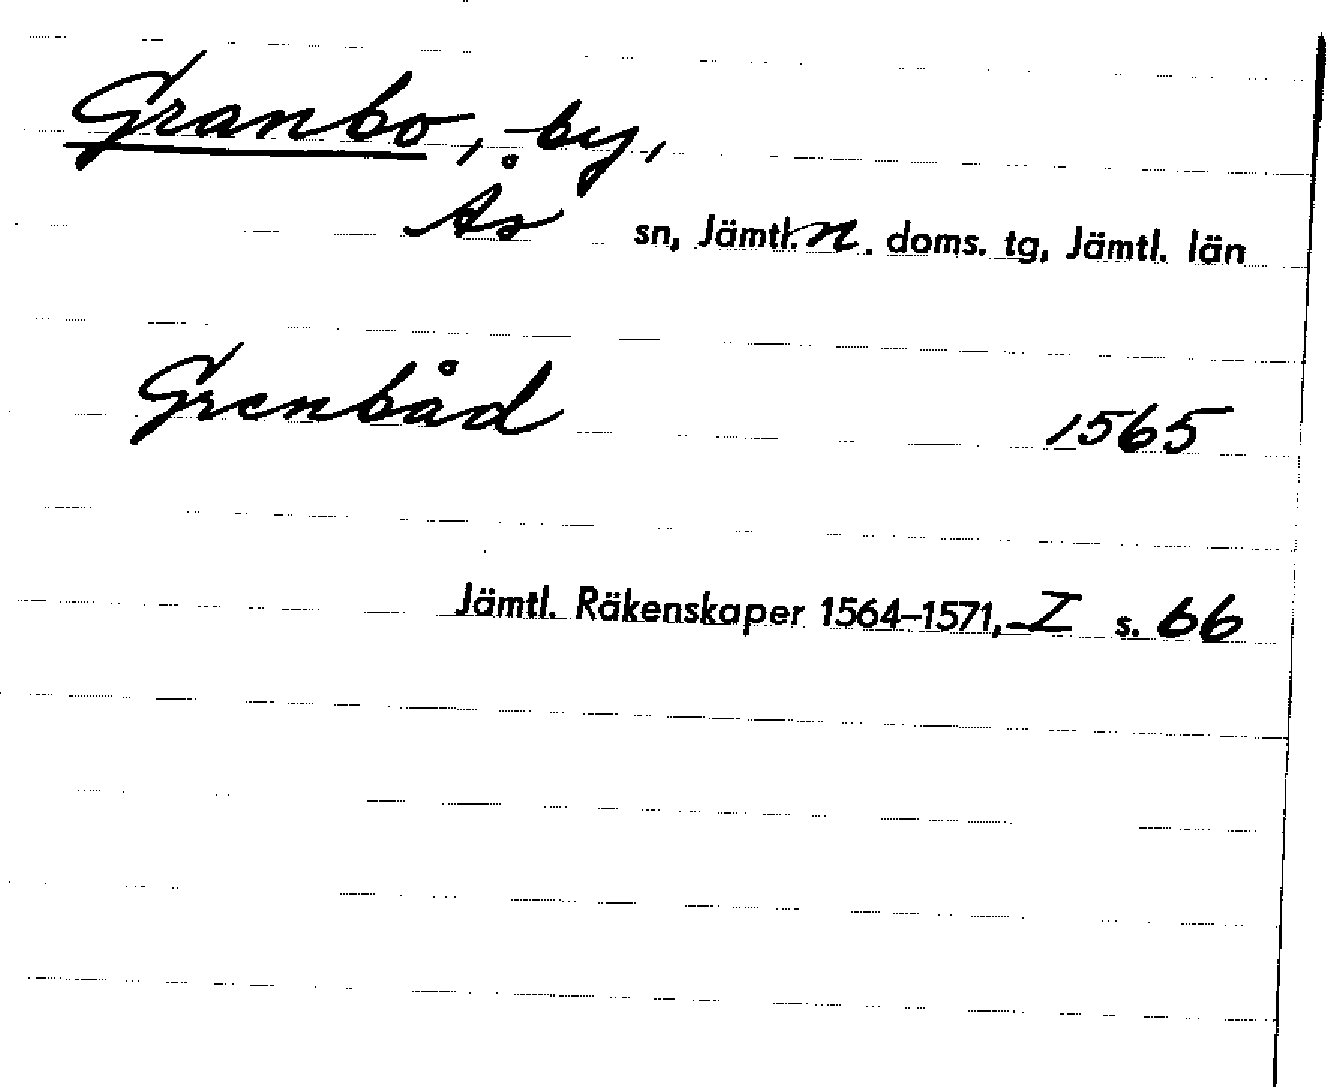 Granbo, by,
Ås sn, Jämtl. n. doms. tg, Jämtl. län
Grenbåd 1565
Jämtl. Räkenskaper 1564–1571, I s. 66